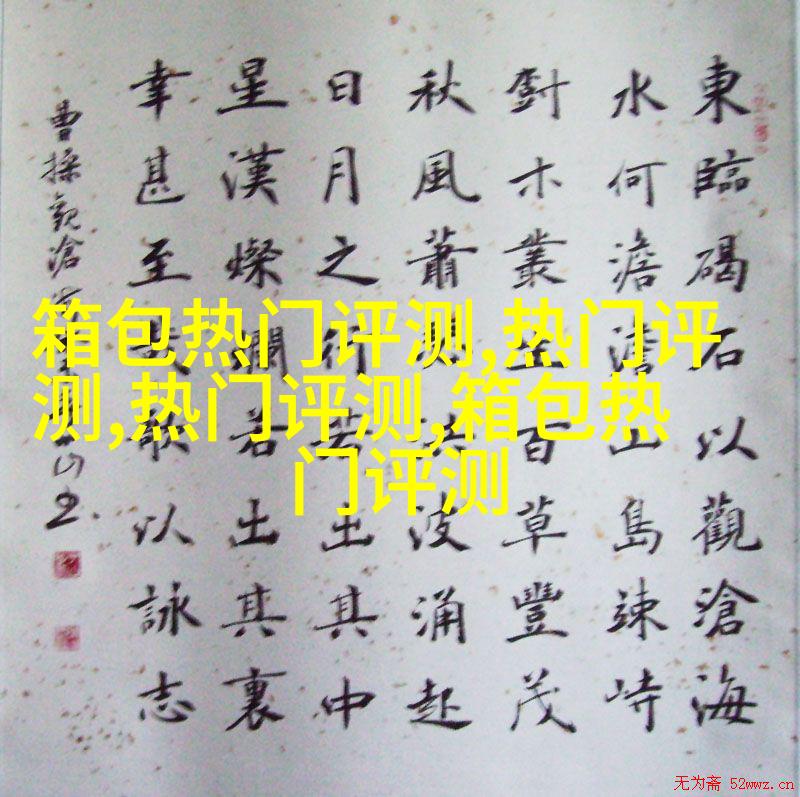 東臨碣石以觀滄海
水何澹澹山島竦峙
尌木叢生百草豐茂
秋風蕭瑟洪波涌起
日月之行若出其中
星漢燦爛若出其裏
幸甚至哉歌以詠志
曹操觀滄海
箱包热门评测,热门评
测,热门评测,箱包热
门评测
无为斋 52wwz.cn